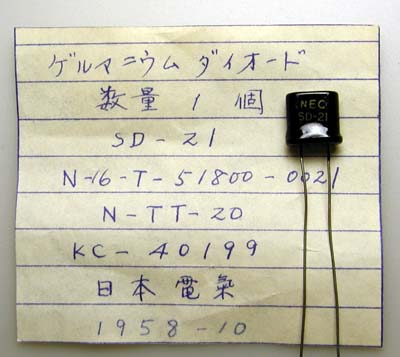 ゲルマニウム ダイオード
数量 1 個
SD-21
N-16-T-51800-0021
N-TT-20
KC-40199
日本電氣
1958-10
NEC
SD-21